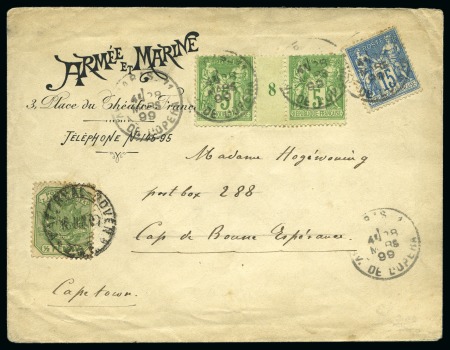 ARMÉE ET MARINE
3, Place du Théâtre Français
TÉLÉPHONE Nº 145-95
8
Madame Hogéwoning
postbox 288
Cap de Bonne Espérance
Capetown
PARIS. 1
28
MARS
99
AV. DE L'OPERA